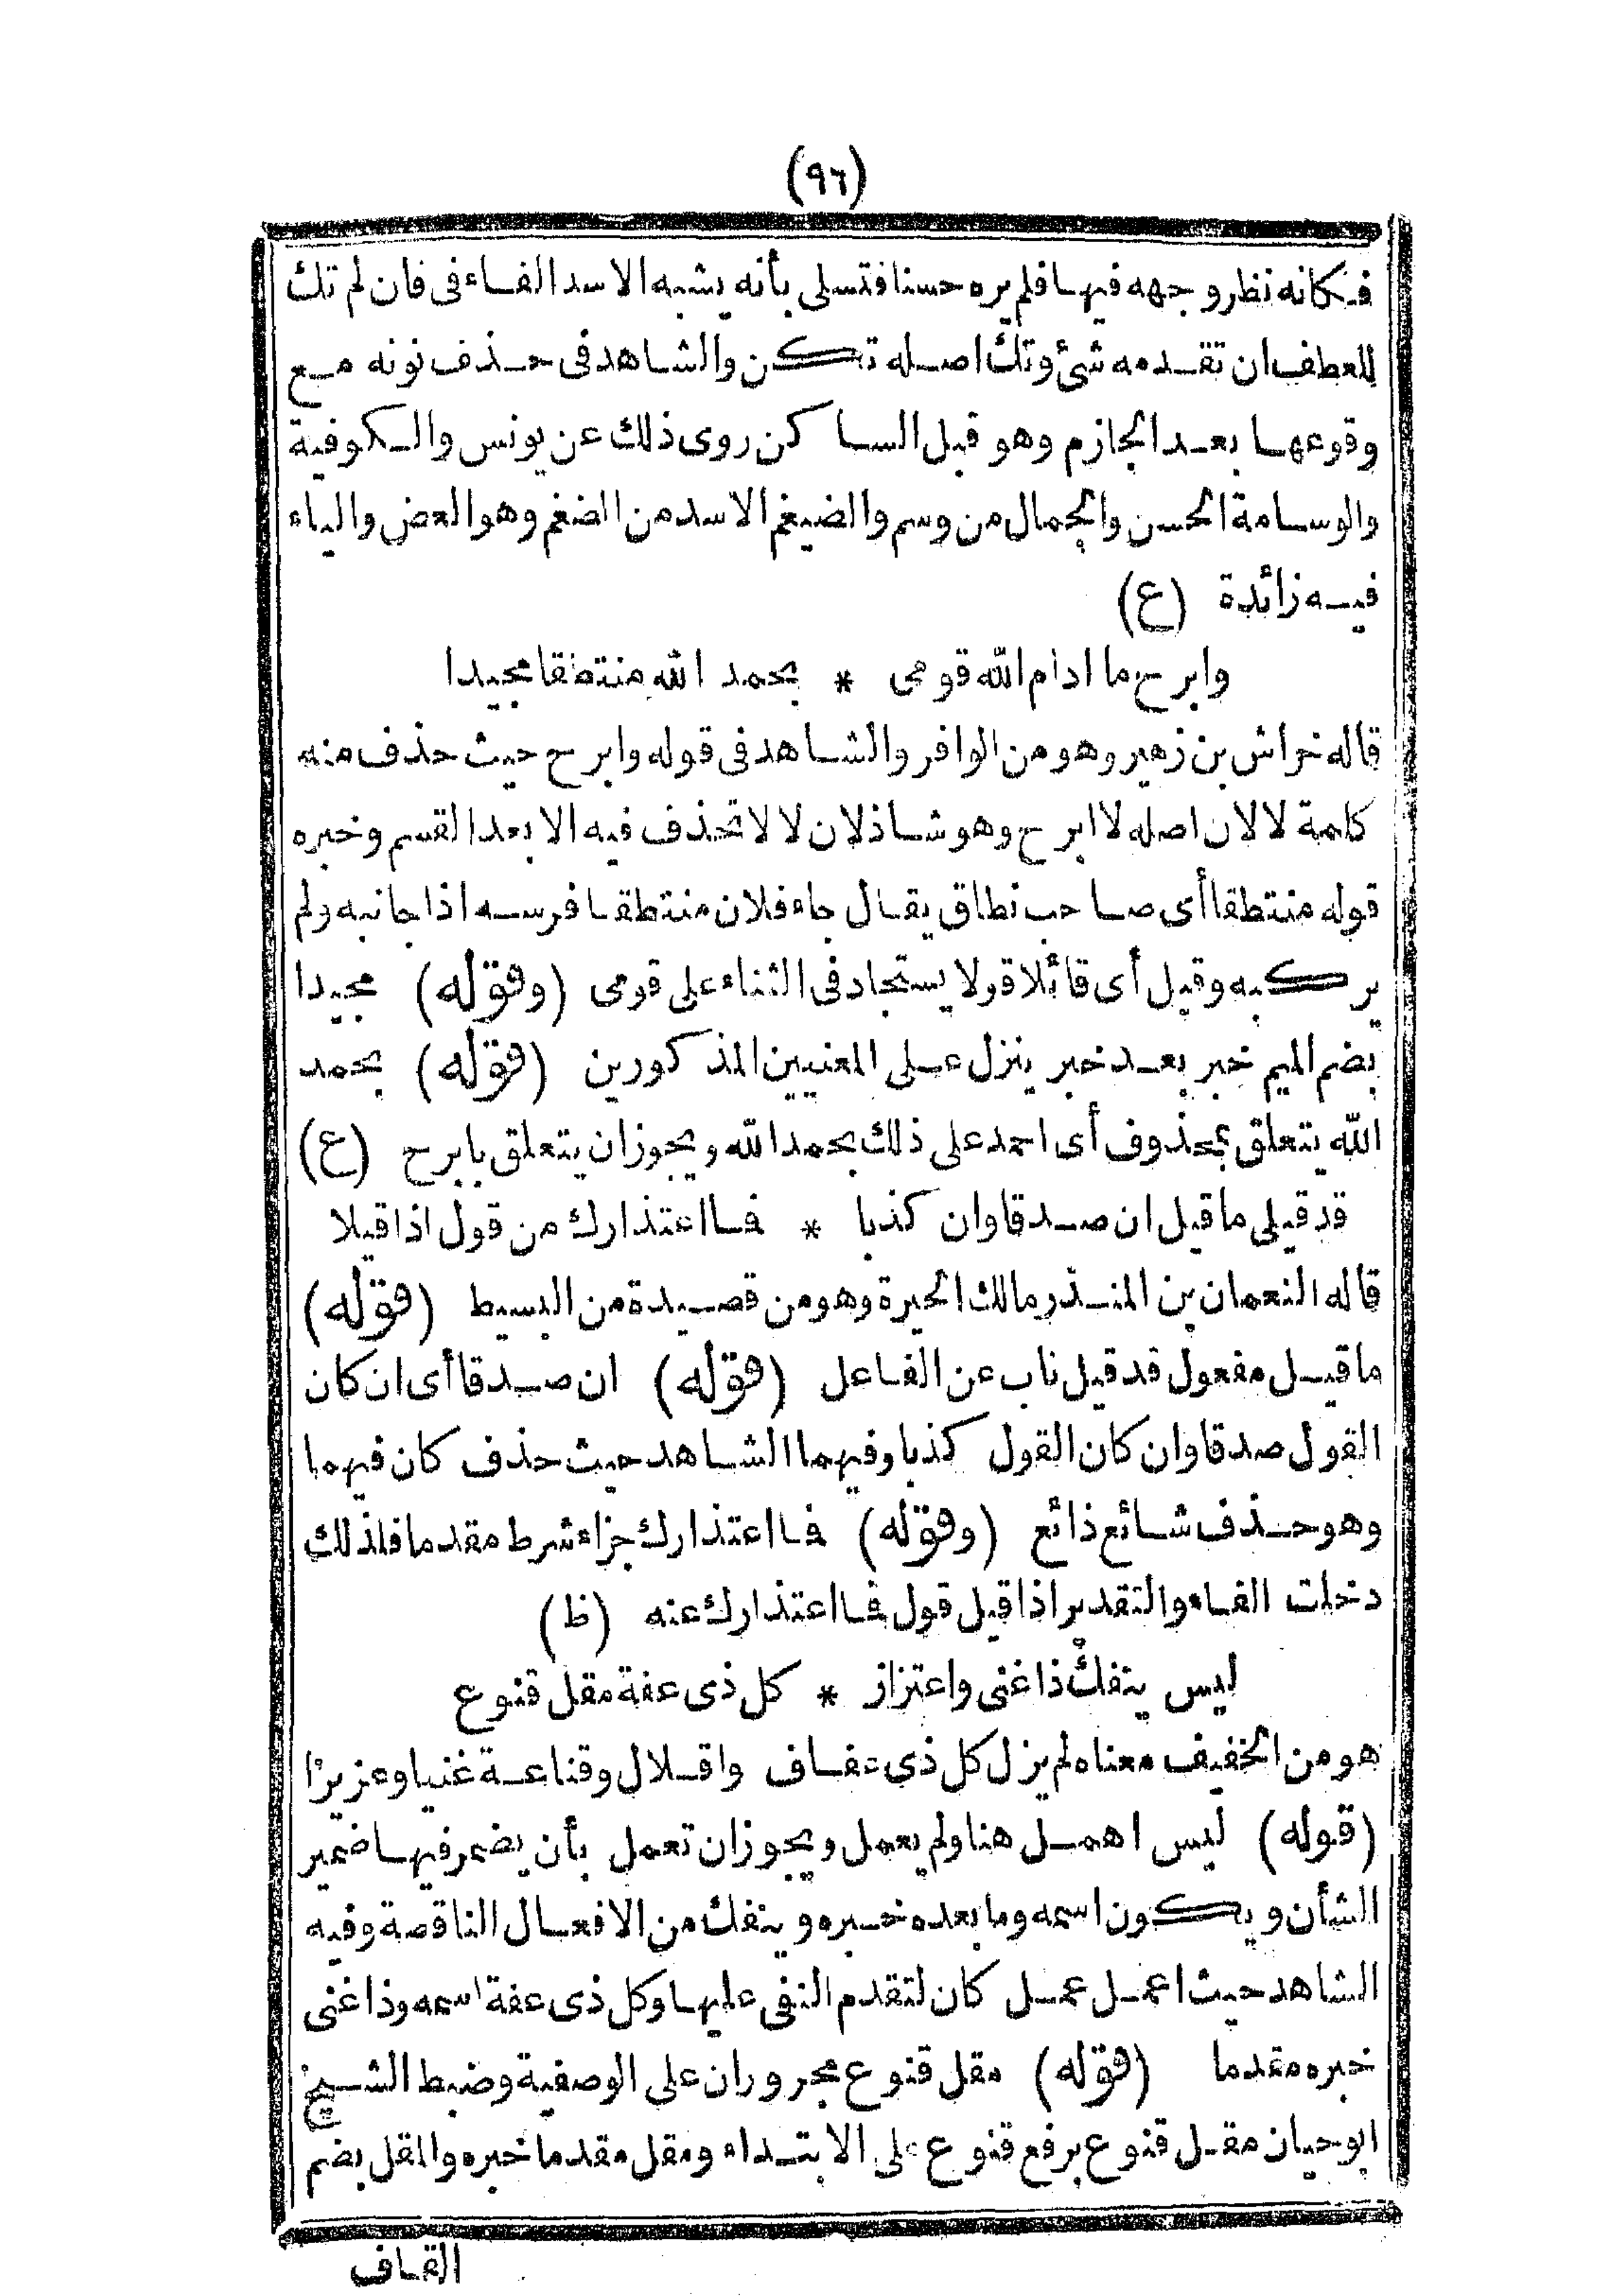 (٩٦)
فكأنه نظر وجهه فيها فلم يره حسنا فتسلى بأنه يشبه الاسد الفاء فى فان لم تك
للعطف ان تقدمه شئ وتك اصله تكن والشاهد فى حذف نونه مع
وقوعها بعد الجازم وهو قبل الساكن روى ذلك عن يونس والكوفية
والوسامة الحسن والجمال من وسم والضيغم الاسد من الضغم وهو العض والياء
فيه زائدة (ع)
وابرح ما ادام الله قومى * بحمد الله منتطقا مجيدا
قاله خراش بن زهير وهو من الوافر والشاهد فى قوله وابرح حيث حذف منه
كلمة لا لان اصله لا ابرح وهو شاذ لان لا لا تحذف فيه الا بعد القسم وخبره
قوله منتطقا أى صاحب نطاق يقال جاء فلان منتطقا فرسه اذا جانبه ولم
يركبه وقيل أى قائلا قولا يستجاد فى الثناء على قومى (وقوله) مجيدا
بضم الميم خبر بعد خبر ينزل على المعنيين المذكورين (قوله) بحمد
الله يتعلق بمحذوف أى احمد على ذلك بحمد الله ويجوز ان يتعلق بابرح (ع)
قد قيل ما قيل ان صدقا وان كذبا * فما اعتذارك من قول اذا قيلا
قاله النعمان بن المنذر مالك الحيرة وهو من قصيدة من البسيط (قوله)
ما قيل مفعول قد قيل ناب عن الفاعل (قوله) ان صدقا أى ان كان
القول صدقا وان كان القول كذبا وفيهما الشاهد حيث حذف كان فيهما
وهو حذف شائع ذائع (وقوله) فما اعتذارك جزاء شرط مقدما فلذلك
دخلت الفاء والتقدير اذا قيل قول فما اعتذارك عنه (ظ)
ليس ينفك ذا غنى واعتزاز * كل ذى عفة مقل قنوع
هو من الخفيف معناه لم يزل كل ذى عفاف واقلال وقناعة غنيا وعزيزا
(قوله) ليس اهمل هنا ولم يعمل ويجوز ان تعمل بأن يضمر فيها ضمير
الشأن ويكون اسمه وما بعده خبره وينفك من الافعال الناقصة وفيه
الشاهد حيث اعمل عمل كان لتقدم النفى عليها وكل ذى عفة اسمه وذا غنى
خبره مقدما (قوله) مقل قنوع مجروران على الوصفية وضبط الشيخ
ابو حيان مقل قنوع برفع قنوع على الابتداء ومقل مقدما خبره والمقل بضم
القاف